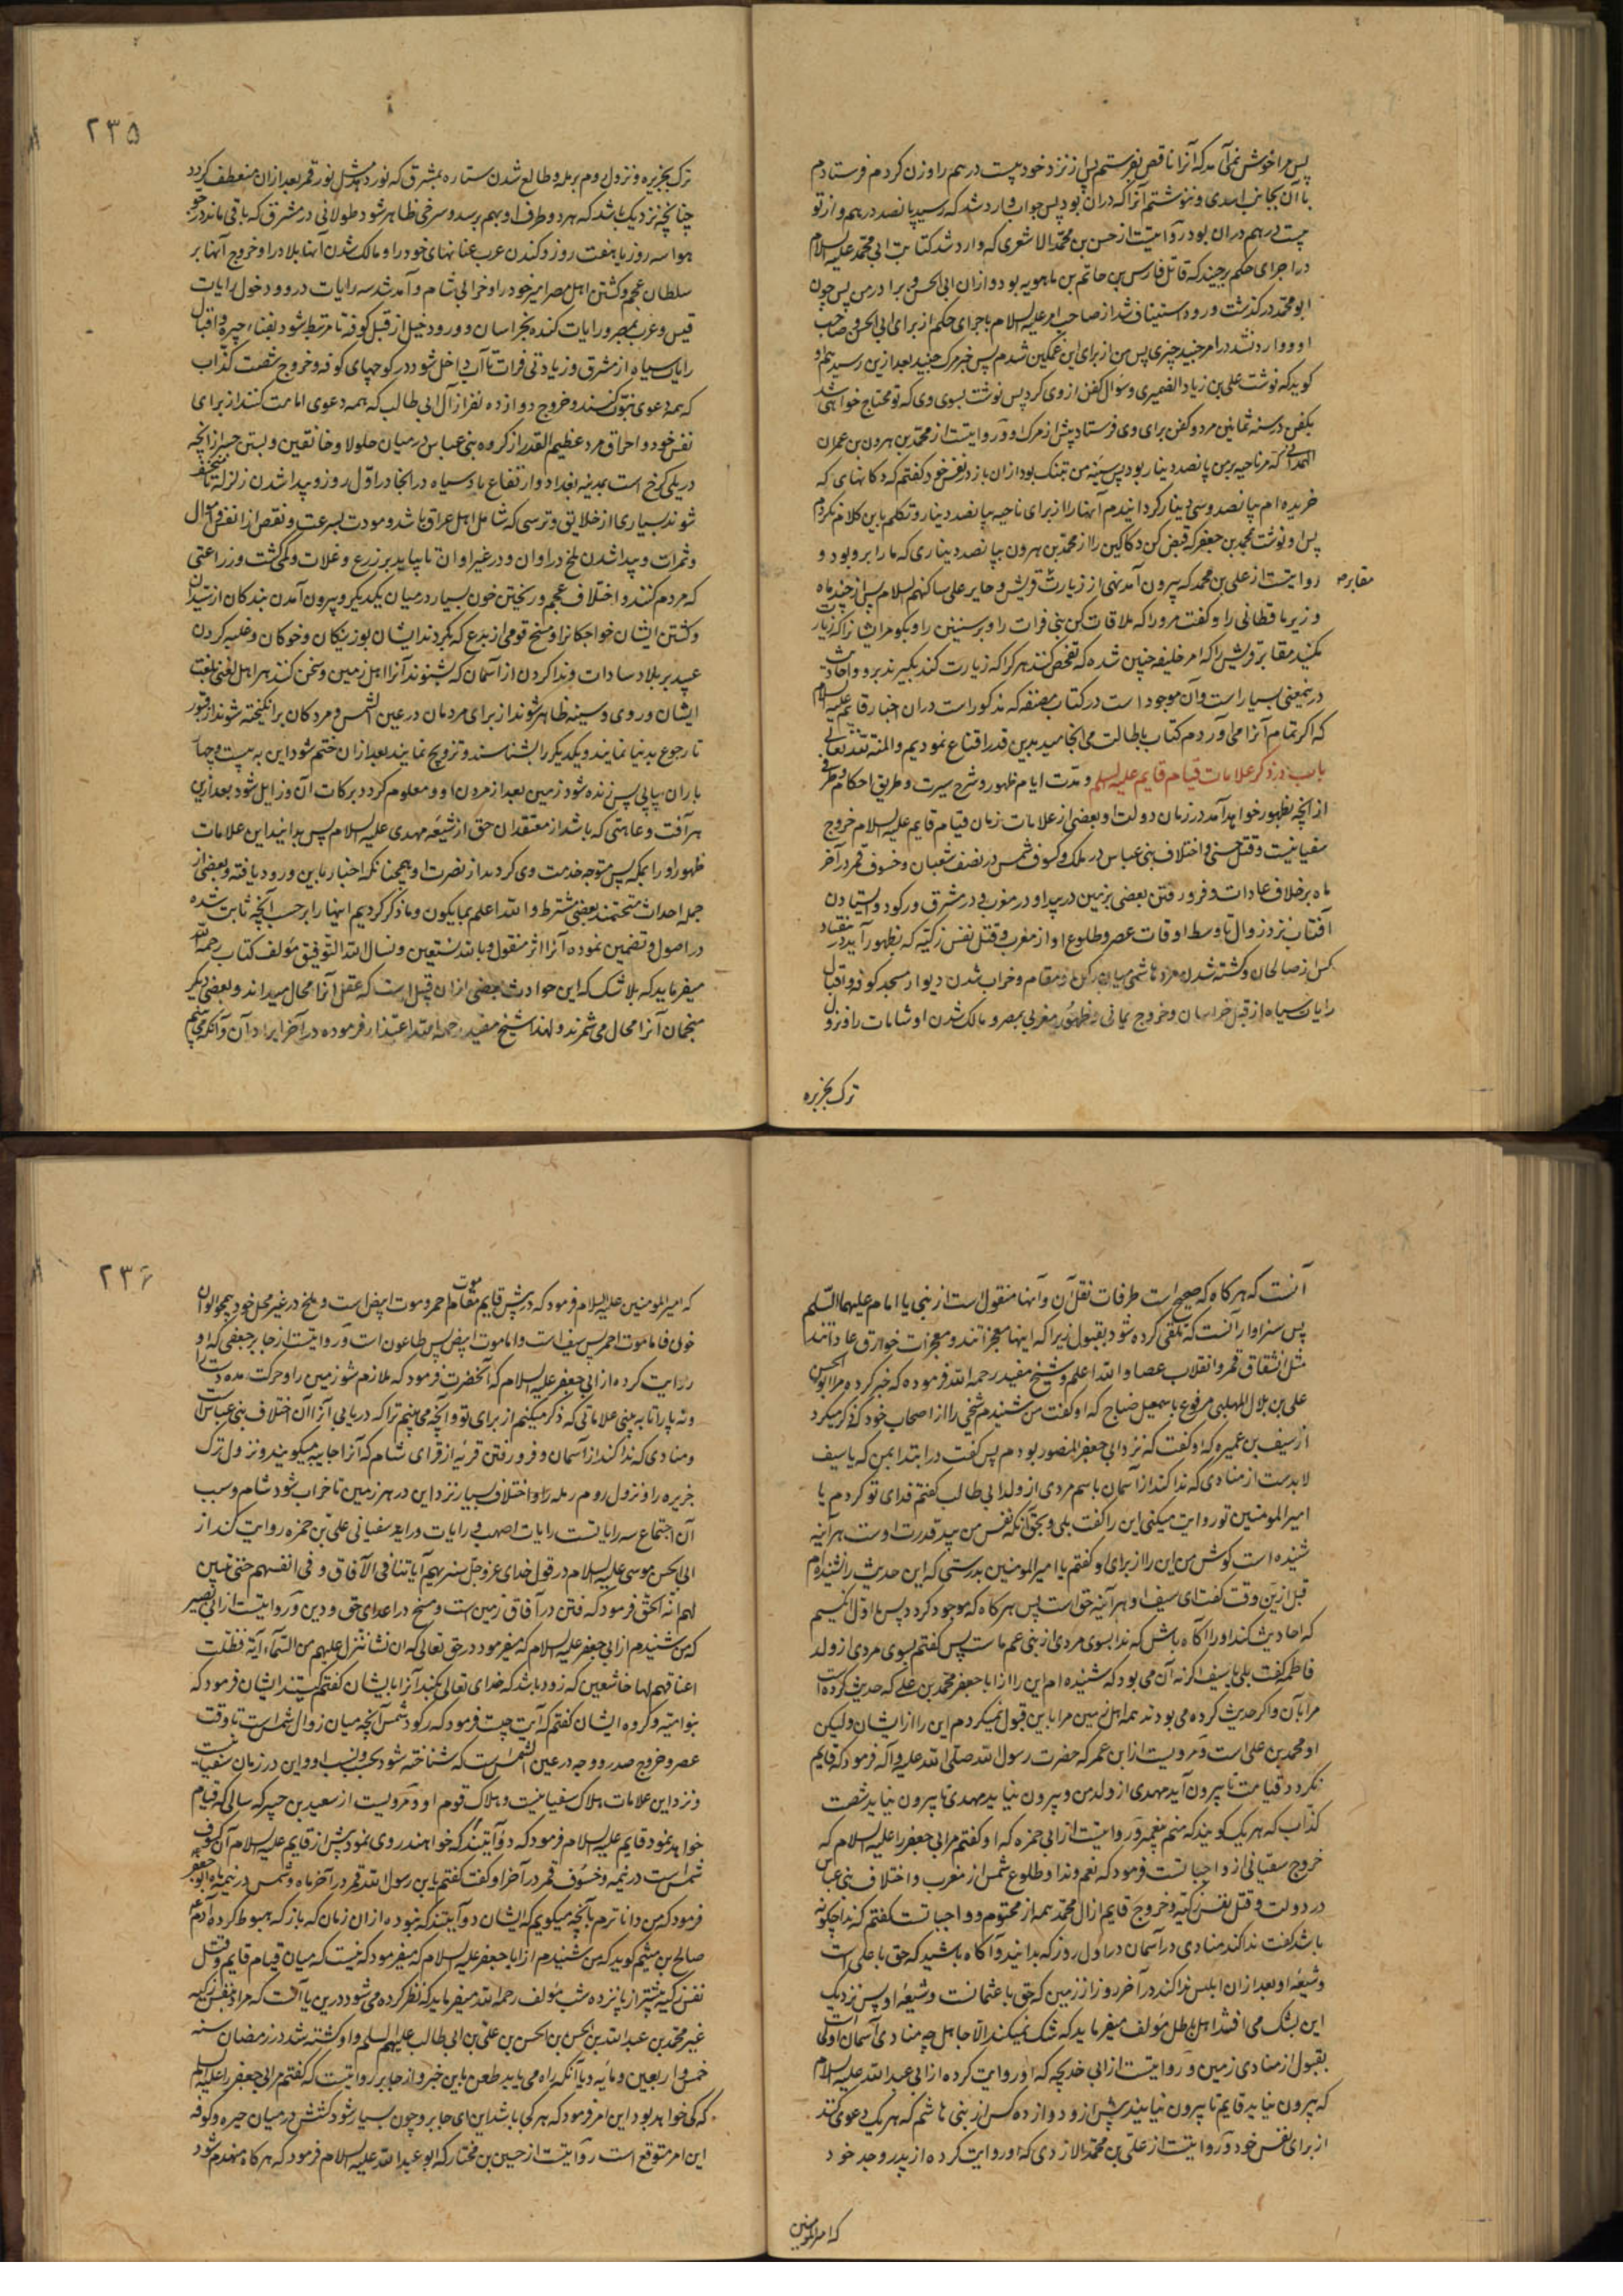 پس مرا خوش نمی‌آمد که آنرا ناقص بفرستم پس از نزد خود بیست درهم را وزن کردم و فرستادم
با آن بجانب اسدی و ننوشتم آنرا که در آن بود پس جواب وارد شد که رسید پانصد درهم و از تو
بیست درهم در آن بود و روایتست از حسن بن محمد الاشعری که وارد شد کتابت ابی محمد علیه السلام
در اجرای حکم بر جنید که قاتل فارس بن حاتم بن ماهویه بود و از آن ابی الحسن و برادر من پس چون
ابو محمد درگذشت ورود استیناف شد از صاحب امر علیه السلام باجرای حکم از برای ابی الحسن و صاحب
او و وارد نشد در امر جنید چیزی پس من از برای این غمگین شدم پس خبر مرگ جنید بعد ازین رسید
گوید که نوشت علی بن زیاد الضمیری و سؤال کفن از وی کرد پس نوشت بسوی وی که تو محتاج خواهی شد
بکفن در سنه ثمانین مرد و کفن برای وی فرستاد پیش از مرگ او و روایتست از محمد بن هرون بن عمران
الهمدانی که مر ناحیه بر من پانصد دینار بود پس سینه من بتنگ بود از آن باز در نفس خود گفتم که دکانهای که
خریده‌ام بپانصد و سی دینار گردانیدم آنها را از برای ناحیه بپانصد دینار و تکلم باین کلام نکردم
پس او نوشت بمحمد بن جعفر که قبض کن دکاکین را از محمد بن هرون بپانصد دیناری که ما را بر و بود و
روایتست از علی بن محمد که بیرون آمد نهی از زیارت قریش و حایر علی ساکنهم السلام پس از چند ماه
مقابر
وزیر باقطانی را و گفت مر او را که ملاقات کن بنی فرات را و برسنیین را و بگو مر ایشان را که زیارت
نکنید مقابر قریش را که امر خلیفه چنین شده که تفحص کنند هر کرا که زیارت کند بگیرند برو و احادیث
درینمعنی بسیار است و آن موجود است در کتاب مصنفه که مذکور است در آن اخبار قایم علیه السلام
که اگر تمام آنرا می‌آوردم کتاب باطالت می‌انجامید بدین قدر اقناع نمودیم و المنة لله تعالی
باب در ذکر علامات قیام قایم علیه السلم و مدت ایام ظهور و شرح سیرت و طریق احکام و طرفی
از آنچه بظهور خواهد آمد در زمان دولت و بعضی از علامات زمان قیام قایم علیه السلام خروج
سفیانیست و قتل حسنی و اختلاف بنی عباس در ملک و کسوف شمس در نصف شعبان و خسوف قمر در آخر
ماه بر خلاف عادات و فرو رفتن بعضی بزمین در بیدا و در مغرب و در مشرق و رکود و ایستادن
آفتاب نزد زوال تا وسط اوقات عصر و طلوع او از مغرب و قتل نفس زکیه که بظهور آید در هفتاد
کس از صالحان و کشته شدن مرد هاشمی میان رکن و مقام و خراب شدن دیوار مسجد کوفه و اقبال
رایات سیاه از قبل خراسان و خروج یمانی و ظهور مغربی بمصر و مالک شدن او شامات را و نزول
ترک بجزیره
۲۳۵
ترک بجزیره و نزول روم برمله و طالع شدن ستاره بمشرق که نور دهد مثل نور قمر بعد از آن منعطف گردد
چنانچه نزدیک باشد که هر دو طرف او بهم برسد و سرخی ظاهر شود طولانی در مشرق که باقی ماند در جو
هوا سه روز یا هفت روز و کندن عرب عنانهای خود را و مالک شدن آنها بلاد را و خروج آنها بر
سلطان عجم و کشتن اهل مصر امیر خود را و خرابی شام و آمد شد سه رایات درو و دخول رایات
قیس و عرب بمصر و رایات کنده بخراسان و ورود خیل از قبل کوفه تا مرتبط شود بفناء حیره و اقبال
رایات سیاه از مشرق و زیادتی فرات تا آب داخل شود در کوچهای کوفه و خروج شصت کذاب
که همه دعوی نبوت کنند و خروج دوازده نفر از آل ابی طالب که همه دعوی امامت کنند از برای
نفس خود و احراق مرد عظیم القدر از گروه بنی عباس در میان جلولا و خانقین و بستن جسر از آنچه
در پلی کرخ است بمدینه بغداد و ارتفاع باد سیاه در آنجا در اول روز و پیدا شدن زلزله تا منخسف
شوند بسیاری از خلایق و ترسی که شامل اهل عراق باشد و موت بسرعت و نقص از انفس و اموال
و ثمرات و پیدا شدن ملخ در اوان و در غیر اوان تا بیاید بر زرع و غلات و کمی کشت و زراعتی
که مردم کنند و اختلاف عجم و ریختن خون بسیار در میان یکدیگر و بیرون آمدن بندگان از سیدان
و کشتن ایشان خواجگان را و مسخ قومی از بدع که بگردند ایشان بوزینگان و خوکان و غلبه کردن
عبید بر بلاد سادات و ندا کردن از آسمان که بشنوند آنرا اهل زمین و سخن کنند هر اهل لغتی بلغت
ایشان و روی و سینه ظاهر شوند از برای مردمان در عین الشمس و مردگان برانگیخته شوند از قبور
تا رجوع بدنیا نمایند و یکدیگر را بشناسند و تزویج نمایند بعد از آن ختم شود این به بیست و چهار
باران پیاپی پس زنده شود زمین بعد از مردن او و معلوم گردد برکات آن و زایل شود بعد ازین
هر آفت و عاهتی که باشد از معتقدان حق از شیعه مهدی علیه السلام پس بدانید این علامات
ظهور او را بمکه پس متوجه خدمت وی گردید از نصرت او همچنانکه اخبار باین ورود یافته و بعضی از
جمله احداث متحتمند بعضی مشترط و الله اعلم بما یکون و ما ذکر کردیم اینها را بر حسب آنچه ثابت شده
در اصول و تضمین نموده آنرا اثر منقول و بالله نستعین و نسال الله التوفیق مؤلف کتاب رحمه الله
میفرماید که بلا شک که این حوادث بعضی از آن قبیل است که عقل آنرا محال میداند و بعضی دیگر
منجمان آنرا محال می‌شمرند و لهذا شیخ مفید رحمه الله اعتذار فرموده در آخر ایراد آن و آنکه می‌بینم
آنست که هرگاه که صحیح است طرفات نقل آن و آنها منقول است از نبی یا امام علیهما السلم
پس سزاوار آنست که تلقی کرده شود بقبول زیرا که اینها معجزاتند و معجزات خوارق عاداتند
مثل انشقاق قمر و انقلاب عصا و الله اعلم و شیخ مفید رحمه الله فرموده که خبر کرده مرا ابو الحسن
علی بن بلال المهلبی مرفوع باسمعیل صباح که او گفت من شنیدم شیخی را از اصحاب خود که ذکر میکرد
از سیف بن عمیره که او گفت که نزد ابی جعفر المنصور بودم پس گفت در ابتدا بمن که یا سیف
لابدست از منادی که ندا کند از آسمان باسم مردی از ولد ابی طالب گفتم فدای تو گردم یا
امیر المومنین تو روایت میکنی این را گفت بلی و بحق آنکه نفس من بید قدرت اوست هر آینه
شنیده است گوش من این را از برای او گفتم یا امیر المومنین بدرستی که این حدیث را نشنیده‌ام
قبل ازین وقت گفت ای سیف او هر آینه حق است پس هرگاه که موجود گردد پس ما اول کسیم
که اجابت کند او را آگاه باش که ندا بسوی مردی از بنی عم ماست پس گفتم بسوی مردی از ولد
فاطمه گفت بلی یا سیف اگر نه آن می‌بود که شنیده‌ام این را از ابا جعفر محمد بن علی که حدیث کرده است
مرا بآن و اگر حدیث کرده می‌بودند همه اهل زمین مرا باین قبول نمیکردم این را از ایشان و لیکن
او محمد بن علی است و مرویست از ابن عمر که حضرت رسول الله صلی الله علیه و آله فرمود که قایم
نگردد قیامت تا بیرون آید مهدی از ولد من و بیرون نیاید مهدی تا بیرون نیاید شصت
کذاب که هر یک گویند که منم پیغمبر و روایتست از ابی حمزه که او گفتم مر ابی جعفر را علیه السلام که
خروج سفیانی از واجباتست فرمود که نعم و ندا و طلوع شمس از مغرب و اختلاف بنی عباس
در دولت و قتل نفس زکیه و خروج قایم از آل محمد همه از محتوم و واجباتست گفتم که ندا چگونه
باشد گفت ندا کند منادی در آسمان در اول روز که بدانید و آگاه باشید که حق با علی است
و شیعه او بعد از آن ابلیس ندا کند در آخر روز از زمین که حق با عثمانست و شیعه او پس نزدیک
این بشک می‌افتد اهل باطل مؤلف میفرماید که شک نمیکند الا جاهل چه منادی آسمان اولی است
بقبول از منادی زمین و روایتست از ابی خدیجه که او روایت کرده از ابی عبد الله علیه السلام
که بیرون نیاید قایم تا بیرون نیایند پیش ازو دوازده کس از بنی هاشم که هر یک دعوی کنند
از برای نفس خود و روایتست از علی بن محمد الازدی که او روایت کرده از پدر و جد خود
که امیر المومنین
۲۳۶
که امیر المومنین علیه السلام فرمود که در پیش قایم موت احمر و موت ابیض است و ملخ در غیر محل خود همچو الوان
خون فاما موت احمر پس سیف است و اما موت ابیض پس طاعون است و روایتست از جابر جعفی که او
روایت کرده از ابی جعفر علیه السلام که آنحضرت فرمود که ملازم شو زمین را و حرکت مده دست را
و نه پا را تا به بینی علاماتی که ذکر میکنیم از برای تو و آنچه می‌بینم ترا که دریابی آنرا آن اختلاف بنی عباس است
و منادی که ندا کند از آسمان و فرو رفتن قریه از قرای شام که آنرا جابیه میگویند و نزول ترک
جزیره را و نزول روم رمله را و اختلاف بسیار نزد این در هر زمین تا خراب شود شام و سبب
آن اجتماع سه رایاتست رایات اصهب و رایات و رایه سفیانی علی بن حمزه روایت کند از
ابی الحسن موسی علیه السلام در قول خدای عز و جل سنریهم آیاتنا فی الآفاق و فی انفسهم حتی یتبین
لهم انه الحق فرمود که فتن در آفاق زمین است و مسخ در اعدای حق و دین و روایتست از ابی بصیر
که من شنیدم از ابی جعفر علیه السلام که میفرمود در حق تعالی که ان نشأ ننزل علیهم من السماء آیة فظلت
اعناقهم لها خاضعین که زود باشد که خدای تعالی بکند آنرا بایشان گفتم کیستند ایشان فرمود که
بنو امیه و گروه ایشان گفتم که آیت چیست فرمود که رکود شمس آنچه میان زوال شمس است تا وقت
عصر و خروج صدر و وجه در عین الشمس است که شناخته شود بحسب و نسب او و این در زمان سفیانیست
و نزد این علامات هلاک سفیانیست و هلاک قوم او و مرویست از سعید بن جبیر که سالی که قیام
خواهد نمود قایم علیه السلام فرمود که دو آیتند که خواهند روی نمود پیش از قایم علیه السلام آن کسوف
شمس است در نیمه و خسوف قمر در آخر او گفت گفتم یا بن رسول الله قمر در آخر ماه و شمس در نیمه ماه ابو جعفر
فرمود که من داناترم بآنچه میگویم که ایشان دو آیتند که نبوده از آن زمان که باز که هبوط کرده آدم
صالح بن میثم گوید که من شنیدم از ابا جعفر علیه السلام که میفرمود که نیست که میان قیام قایم و قتل
نفس زکیه بیشتر از پانزده شب مؤلف رحمه الله میفرماید که نظر کرده می‌شود درین یا آنست که مراد بنفس زکیه
غیر محمد بن عبد الله بن الحسن بن الحسن بن علی بن ابی طالب علیهم السلم و او کشته شد در رمضان سنه
خمس و اربعین و مایه و یا آنکه راه می‌یابد طعن باین خبر و از جابر روایتست که گفتم مر ابی جعفر را علیه السلام
که کی خواهد بود این امر فرمود که هر کی باشد این ای جابر و چون بسیار شود کشتش در میان حیره و کوفه
این امر متوقع است روایتست از حسین بن مختار که ابو عبد الله علیه السلام فرمود که هرگاه منهدم شود